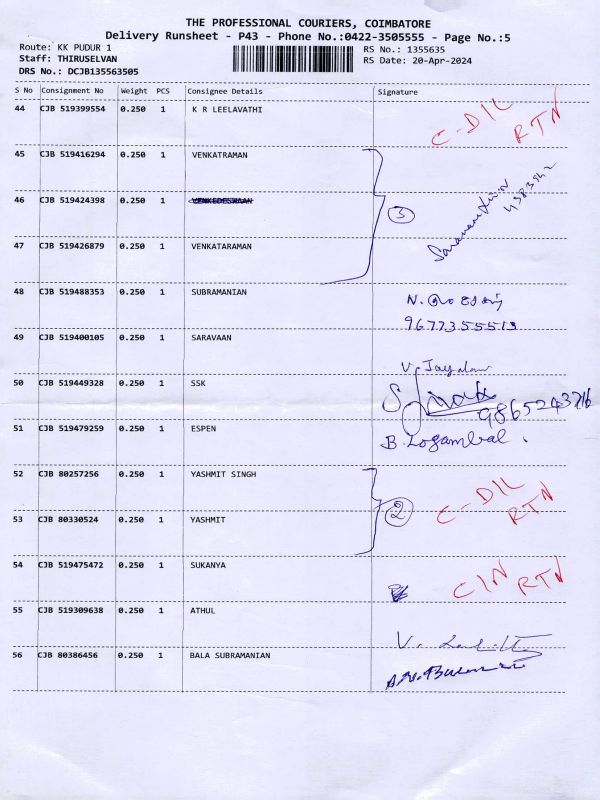 THE PROFESSIONAL COURIERS, COIMBATORE
Delivery Runsheet - P43 - Phone No.:0422-3505555 - Page No.:5
Route: KK PUDUR 1
Staff: THIRUSELVAN
DRS No.: DCJB135563505
RS No.: 1355635
RS Date: 20-Apr-2024
S No Consignment No Weight PCS Consignee Details Signature
44 CJB 519399554 0.250 1 K R LEELAVATHI C-DIL RTN
45 CJB 519416294 0.250 1 VENKATRAMAN
46 CJB 519424398 0.250 1 3
47 CJB 519426879 0.250 1 VENKATARAMAN
48 CJB 519488353 0.250 1 SUBRAMANIAN N.
9677355513
49 CJB 519400105 0.250 1 SARAVAAN V.
50 CJB 519449328 0.250 1 SSK
51 CJB 519479259 0.250 1 ESPEN B. Logambal.
52 CJB 80257256 0.250 1 YASHMIT SINGH C-DIL RTN
2
53 CJB 80330524 0.250 1 YASHMIT
54 CJB 519475472 0.250 1 SUKANYA CIN RTN
55 CJB 519309638 0.250 1 ATHUL V.
56 CJB 80386456 0.250 1 BALA SUBRAMANIAN